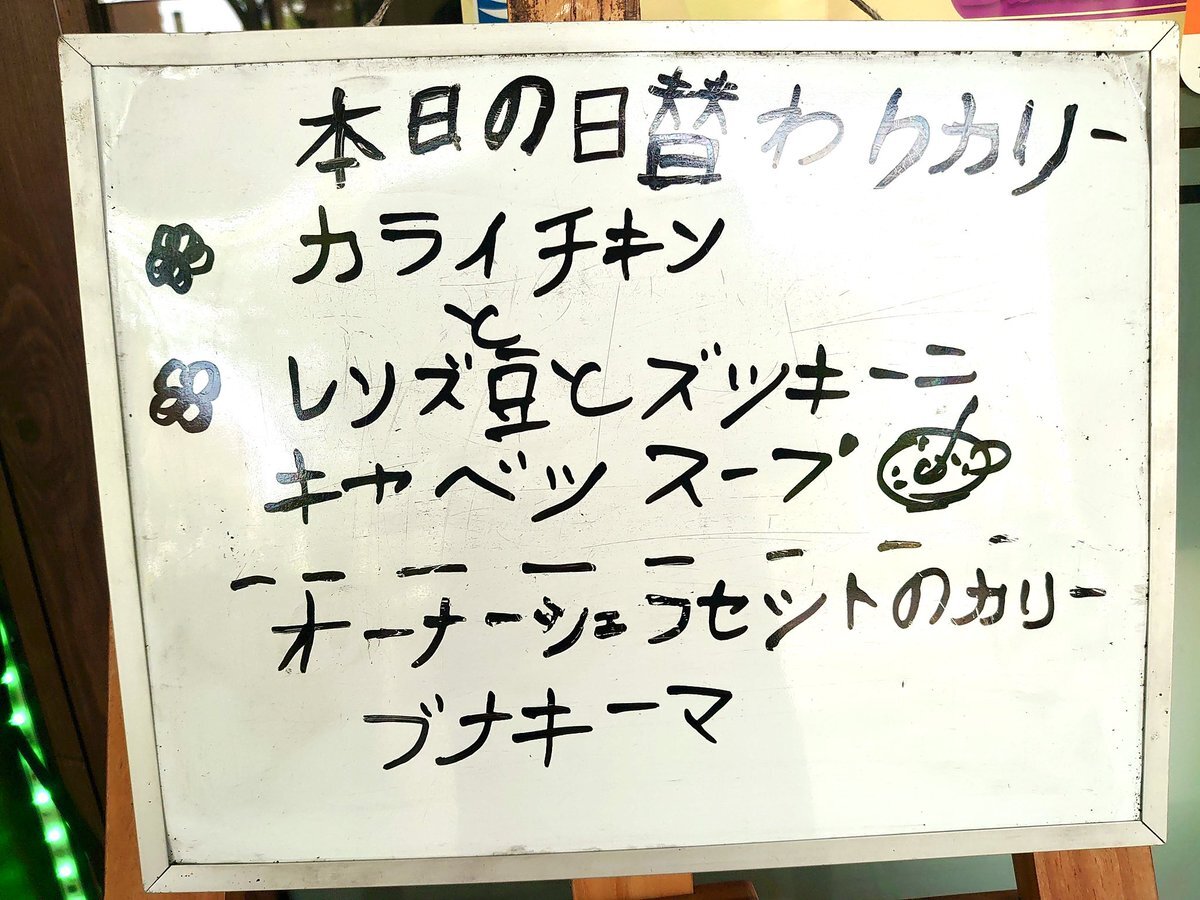 本日の日替わりカリー
カライチキン
と
レンズ豆とズッキーニ
キャベツスープ
オーナーシェフセットのカリー
ブナキーマ